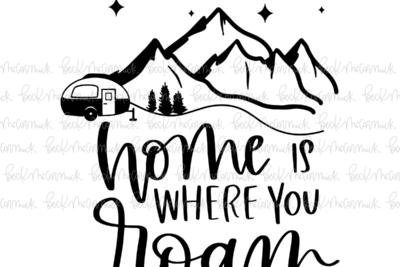 home is
WHERE YOU
Roam